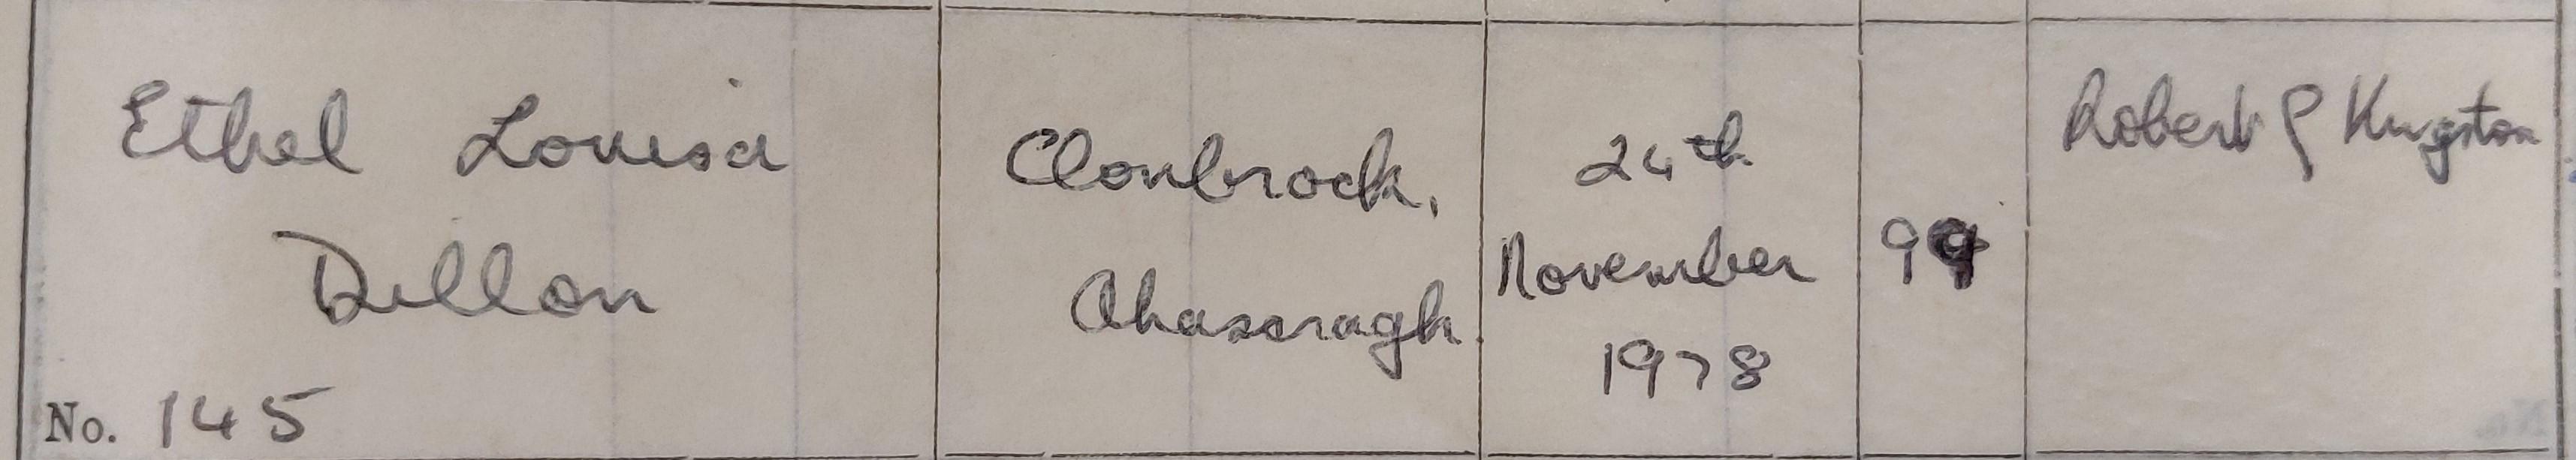 Ethel Louisa
Dillon
No. 145
Clonbrock,
Ahascragh
24th
November
1978
99
Robert P Kingston